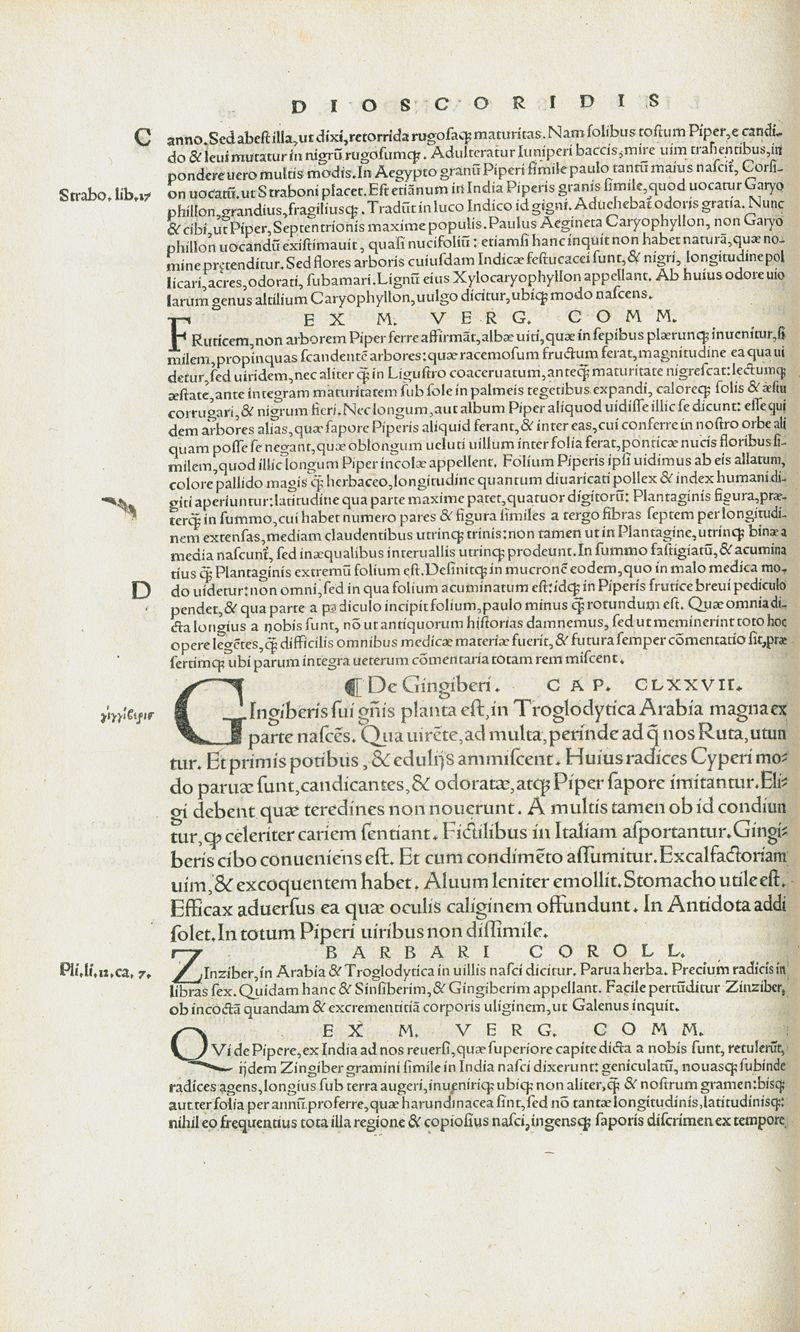 DIOSCORIDIS
C
anno. Sed abest illa, ut dixi, retorrida rugosaq; maturitas. Nam solibus tostum Piper, e candi-
do & leui mutatur in nigrū rugosumq;. Adulteratur Iuniperi baccis, mire uim trahentibus, in
pondere uero multis modis. In Aegypto granū Piperi simile paulo tantū maius nascit, Corsi-
Strabo. lib. 17
on uocatū. ut Straboni placet. Est etiānum in India Piperis granis simile, quod uocatur Garyo
phillon, grandius, fragiliusq;. Tradūt in luco Indico id gigni. Aduehebat̄ odoris gratia. Nunc
& cibi, ut Piper, Septentrionis maxime populis. Paulus Aegineta Caryophyllon, non Garyo
phillon uocandū existimauit, quasi nucifoliū: etiamsi hanc inquit non habet naturā, quæ no-
mine prætenditur. Sed flores arboris cuiusdam Indicæ festucacei sunt, & nigri, longitudine pol
licari, acres, odorati, subamari. Lignū eius Xylocaryophyllon appellant. Ab huius odore uio
larum genus altilium Caryophyllon, uulgo dicitur, ubiq; modo nascens.
EX M. VERG. COMM.
FRuticem, non arborem Piper ferre affirmāt, albæ uiti, quæ in sepibus plærunq; inuenitur, si
milem, propinquas scandentē arbores: quæ racemosum fructum ferat, magnitudine ea qua ui
detur, sed uiridem, nec aliter q̄; in Ligustro coaceruatum, anteq̄; maturitate nigrescat: lectumq;
æstate, ante integram maturitatem sub sole in palmeis tegetibus expandi, caloreq; solis & æstu
corrugari, & nigrum fieri. Nec longum, aut album Piper aliquod uidisse illic se dicunt: esse qui
dem arbores alias, quæ sapore Piperis aliquid ferant, & inter eas, cui conferre in nostro orbe ali
quam posse se negant, quæ oblongum ueluti uillum inter folia ferat, ponticæ nucis floribus si-
milem, quod illic longum Piper incolæ appellent. Folium Piperis ipsi uidimus ab eis allatum,
colore pallido magis q̄; herbaceo, longitudine quantum diuaricati pollex & index humani di-
giti aperiuntur: latitudine qua parte maxime patet, quatuor digitorū: Plantaginis figura, præ-
terq̄; in summo, cui habet numero pares & figura similes a tergo fibras septem per longitudi-
nem extensas, mediam claudentibus utrinq; trinis: non tamen ut in Plantagine, utrinq; binæ a
media nascunt̄, sed inæqualibus interuallis utrinq; prodeunt. In summo fastigiatū, & acumina
tius q̄; Plantaginis extremū folium est. Definitq; in mucronē eodem, quo in malo medica mo-
D
do uidetur: non omni, sed in qua folium acuminatum est: idq; in Piperis frutice breui pediculo
pendet, & qua parte a pediculo incipit folium, paulo minus q̄; rotundum est. Quæ omnia di-
cta longius a nobis sunt, nō ut antiquorum historias damnemus, sed ut meminerint toto hoc
opere legētes, q̄; difficilis omnibus medicæ materiæ fuerit, & futura semper cōmentatio sit, præ
sertimq; ubi parum integra ueterum cōmentaria totam rem miscent.
¶ De Gingiberi. CAP. CLXXVII.
γίγγιβερις
GIngiberis sui gn̄is planta est, in Troglodytica Arabia magna ex
parte nascēs. Qua uirēte, ad multa, perinde ad q̄ nos Ruta, utun
tur. Et primis potibus, & edulijs ammiscent. Huius radices Cyperi mo-
do paruæ sunt, candicantes, & odoratæ, atq; Piper sapore imitantur. Eli-
gi debent quæ teredines non nouerunt. A multis tamen ob id condiun
tur, q; celeriter cariem sentiant. Fictilibus in Italiam asportantur. Gingi-
beris cibo conueniens est. Et cum condimēto assumitur. Excalfactoriam
uim, & excoquentem habet. Aluum leniter emollit. Stomacho utile est.
Efficax aduersus ea quæ oculis caliginem offundunt. In Antidota addi
solet. In totum Piperi uiribus non dissimile.
BARBARI COROLL.
Pli. li. 12. ca. 7.
ZInziber, in Arabia & Troglodytica in uillis nasci dicitur. Parua herba. Precium radicis in
libras sex. Quidam hanc & Sinsiberim, & Gingiberim appellant. Facile pertūditur Zinziber,
ob incoctā quandam & excrementitiā corporis uliginem, ut Galenus inquit.
EX M. VERG. COMM.
QVi de Pipere, ex India ad nos reuersi, quæ superiore capite dicta a nobis sunt, retulerūt,
ijdem Zingiber gramini simile in India nasci dixerunt: geniculatū, nouasq; subinde
radices agens, longius sub terra augeri, inueniriq; ubiq; non aliter, q̄; & nostrum gramen: bisq;
aut ter folia per annū proferre, quæ harundinacea sint, sed nō tantæ longitudinis, latitudinisq;:
nihil eo frequentius tota illa regione & copiosius nasci, ingensq; saporis discrimen ex tempore